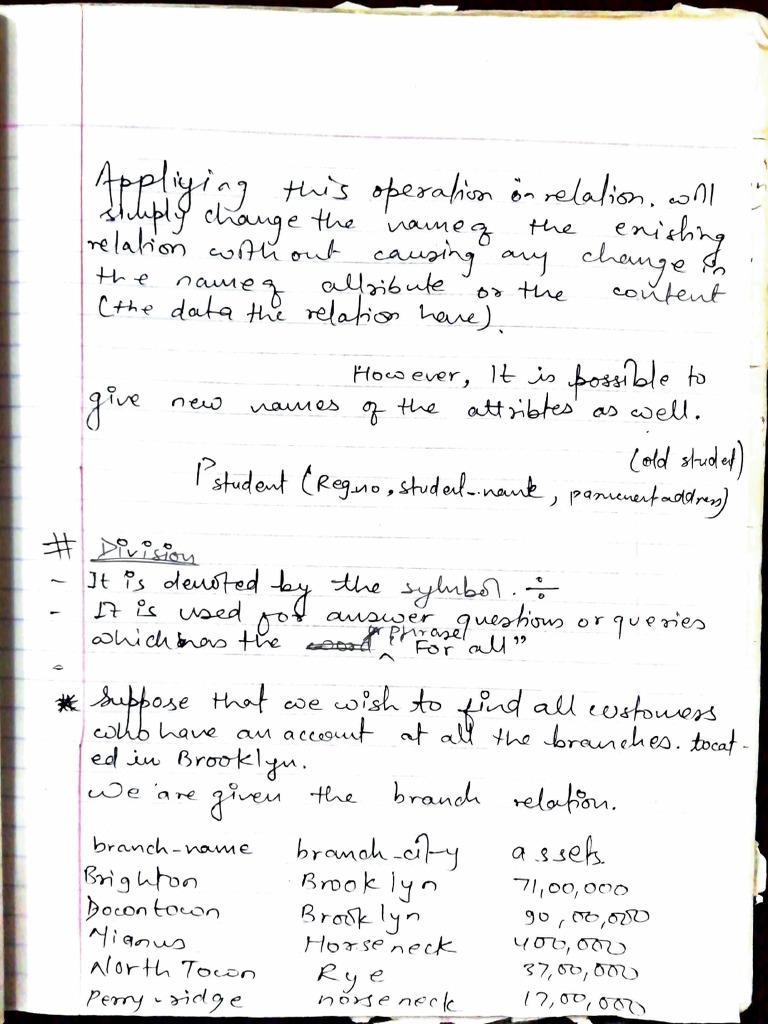 Appliying this operation on relation. will
simply change the name of the existing
relation without causing any change in
the name of attribute or the content
(the data the relation have).
However, It is possible to
give new names of the attribtes as well.
(old studet)
ρ student (Reg.no, student-name, parmenent address)
# Division
- It is denoted by the symbol. ÷
- It is used for answer questions or queries
which has the "Phrase For all"
-
* Suppose that we wish to find all customers
who have an account at all the branches. locat-
ed in Brooklyn.
We are given the branch relation.
branch-name branch-city assets
Brighton Brooklyn 71,00,000
Downtown Brooklyn 90,00,000
Mianus Horseneck 400,000
North Town Rye 37,00,000
Perry-ridge horseneck 17,00,000